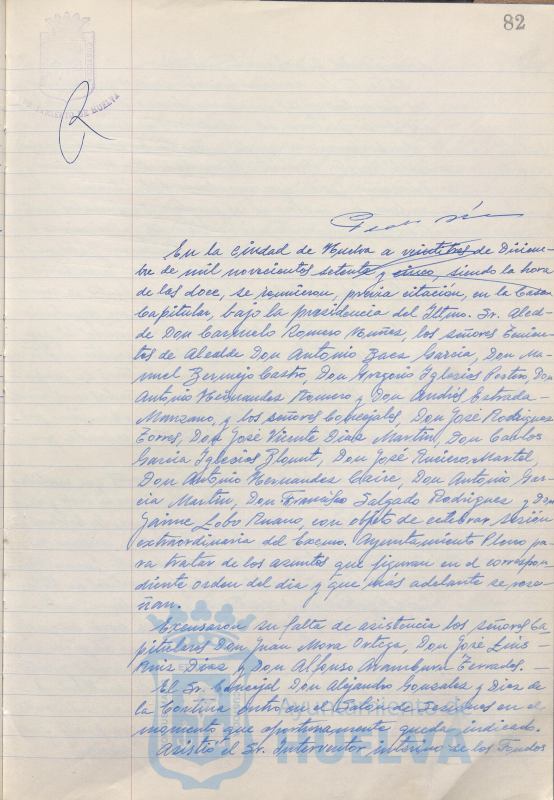 82
AYUNTAMIENTO DE HUELVA
En la Ciudad de Huelva a veintitres de Diciem-
bre de mil novecientos setenta y cinco, siendo la hora
de las doce, se reunieron, previa citación, en la Casa
Capitular, bajo la presidencia del Iltmo. Sr. Alcal-
de Don Carmelo Romero Núñez, los señores Tenien-
tes de Alcalde Don Antonio Baes Garcia, Don Ma-
nuel Bermejo Castro, Don Gregorio Iglesias Don
Antonio Hernandez Romero y Don Andrés Estrada
Manzano, y los señores Concejales, Don José Rodriguez
Torres, Don José Vicente Diaz Martin, Don Carlos
Garcia Iglesias Don José Martel,
Don Antonio Hernandez Claire, Don Antonio Gar-
cia Martin, Don Francisco Salgado Rodriguez y Don
Jaime Lobo Ruano, con objeto de celebrar sesión
extraordinaria del Excmo. Ayuntamiento Pleno pa-
ra tratar de los asuntos que figuran en el correspon-
diente orden del día y que más adelante se rese-
ñan.
Excusaron su falta de asistencia los señores Ca-
pitulares Don Juan Mora Ortega, Don José Luis
Ruiz Díaz y Don Alfonso Aramburu Terrades. -
El Sr. Concejal Don Alejandro Gonzales y Diez de
la Cortina entró en el Salón de Sesiones en el
momento que oportunamente queda indicado.
Asistió el Sr. Interventor interino de los Fondos
Ayuntamiento de
HUELVA